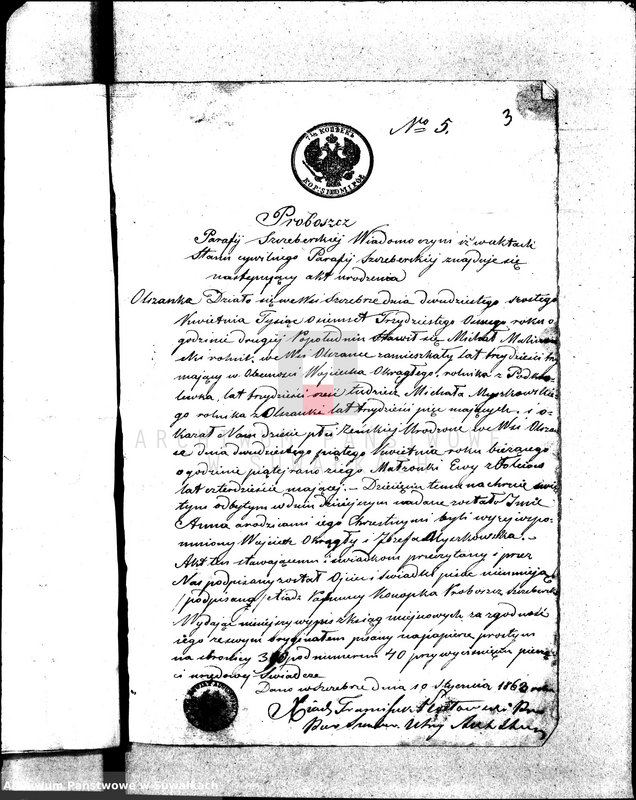 3
Nro 5.
7½ КОПѢЕК
KOP: SREBREM I PÓŁ
Proboszcz
Parafij Szczeberskiej Wiadomo czyni iż w aktach
Stanu cywilnego Parafij Szczeberskiej znajduje się
następujący akt urodzenia
Olszanka Działo się we Wsi Szczebrze dnia dwudziestego szóstego
Kwietnia Tysiąc Osiemset Trzydziestego Ósmego roku o
godzinie drugiej Popołudniu Stawił się Michał
rolnik, we Wsi Olszance zamieszkały lat trzydzieści
mający w Obecności Wojciecha Okrągłego, rolnika z
lat trzydzieści sześć tudzież Michała
go rolnika z Olszanki lat trzydzieści pięć mających, i o
kazał Nam dziecie płci Żeńskiej Urodzone we Wsi Olszan
ce dnia dwudziestego piątego Kwietnia roku bieżącego
o godzinie piątej rano z jego Małżonki Ewy z
lat czterdzieście mającej. – Dziecięciu temu na chrzcie świę
tym odbytym w dniu dzisiejszym nadane zostało Imie
Anna a rodzicami jego Chrestnymi byli wyżej wspo
mniony Wojciech Okrągły i Józefa Myszkowska. –
Akt ten stawającemu i świadkom przeczytany i przez
Nas podpisany został Ojciec i świadki pisać nieumieją
/podpisano/ Xiądz Konopka Proboszcz Szczeberski
Wydając niniejszy wypis z ksiąg miejscowych za zgodność
jego z swym oryginałem pisany na papierze prostym
na stronicy pod numerem 40 przy wyciśnieniu pieczę
ci urzędowej Świadczę
Dano w Szczebrze dnia 19 Stycznia 1863 roku
Xiądz
ARCHIWUM PAŃSTWOWE
Archiwum Państwowe w Suwałkach